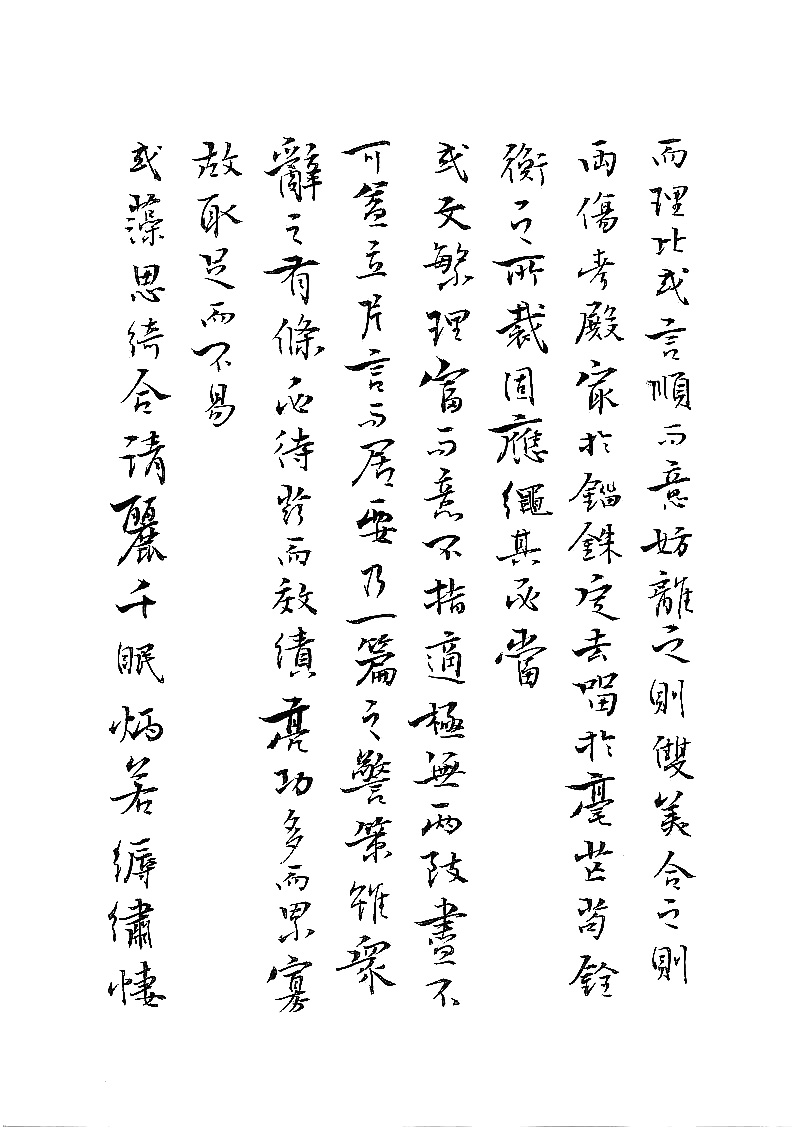 而理比或言順而意妨離之則雙美合之則
兩傷考殿最於錙銖定去留於毫芒苟銓
衡之所裁固應繩其必當
或文繁理富而意不指適極無兩致盡不
可益立片言而居要乃一篇之警策雖眾
辭之有條必待茲而效績亮功多而累寡
故取足而不易
或藻思綺合清麗千眠炳若縟繡悽